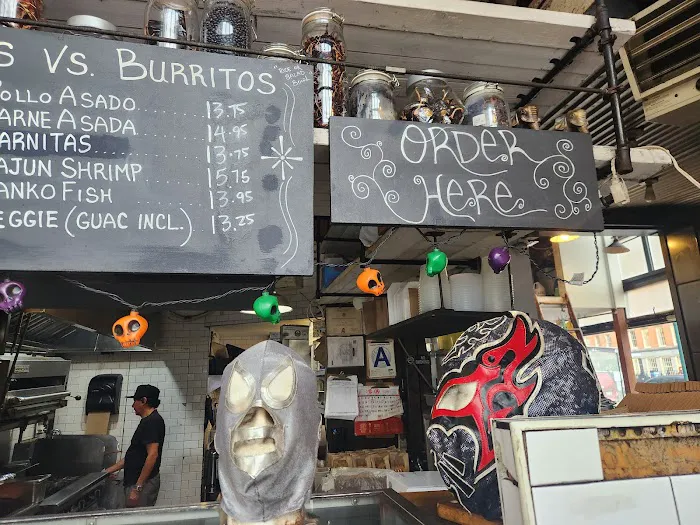 S VS. BURRITOS
OLLO ASADO 13.75
ARNE ASADA 14.95
ARNITAS 13.75
AJUN SHRIMP 15.75
ANKO FISH 13.95
EGGIE (GUAC INCL.) 13.25
ORDER
HERE
A